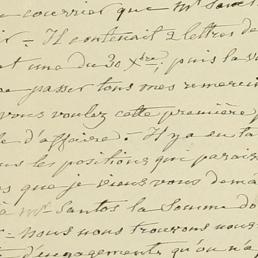 courrier que Mr Sam
ir = Il contenait 2 lettres de
et une du 30 Xbre; puis la v
passer tous mes remerci
vous voulez cette première
d'affaires. Il y a eu ta
les positions que parais
que je viens vous dema
à Mr Santos la Somme do
= Nous nous trouvons nous
d'engagements qu'on n'a